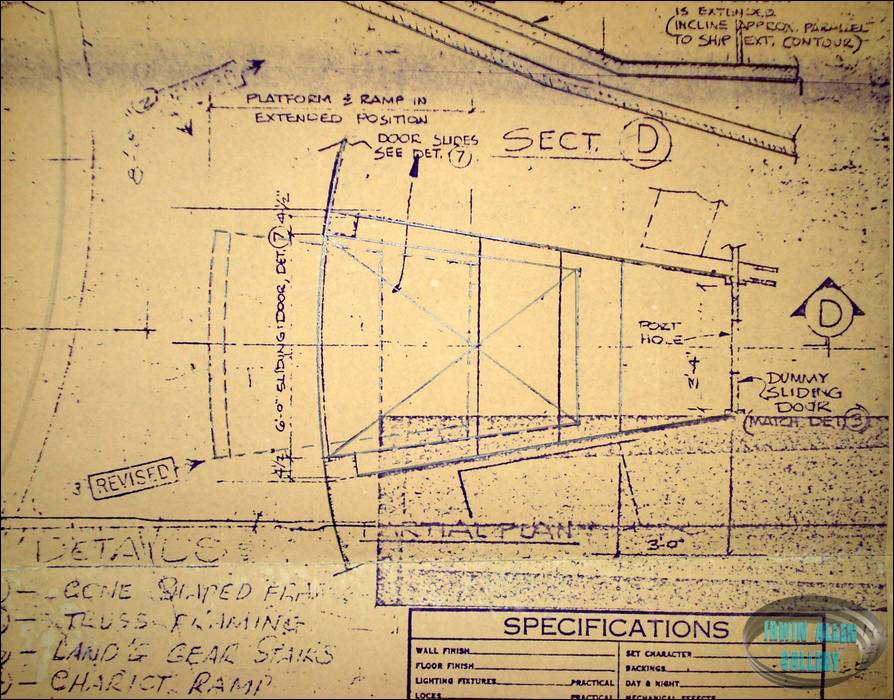 IS EXTENDED
(INCLINE APPROX. PARALLEL
TO SHIP EXT. CONTOUR)
PLATFORM & RAMP IN
EXTENDED POSITION
DOOR SLIDES
SEE DET. 7
SECT. D
4½"
6'-0" SLIDING DOOR, DET. 7
4½"
D
PORT
HOLE
DUMMY
SLIDING
DOOR
(MATCH DET. 3)
3 REVISED
PARTIAL PLAN
3'-0"
DETAILS
— CONE SHAPED
— TRUSS FRAMING
— LAND'G GEAR STAIRS
— CHARIOT RAMP
SPECIFICATIONS
WALL FINISH
SET CHARACTER
FLOOR FINISH
BACKINGS
LIGHTING FIXTURES PRACTICAL
DAY & NIGHT
LOCKS PRACTICAL
MECHANICAL EFFECTS
IRWIN ALLEN
GALLERY